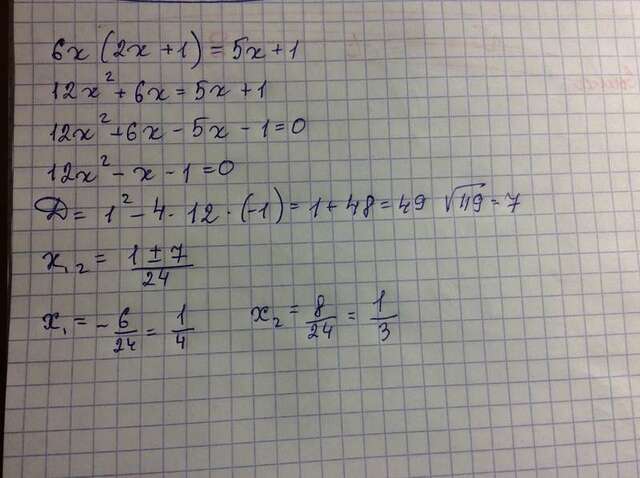 6x (2x + 1) = 5x + 1
12x² + 6x = 5x + 1
12x² + 6x - 5x - 1 = 0
12x² - x - 1 = 0
D = 1² - 4 · 12 · (-1) = 1 + 48 = 49 √49 = 7
x₁₂ = (1 ± 7)/24
x₁ = -6/24 = 1/4 x₂ = 8/24 = 1/3